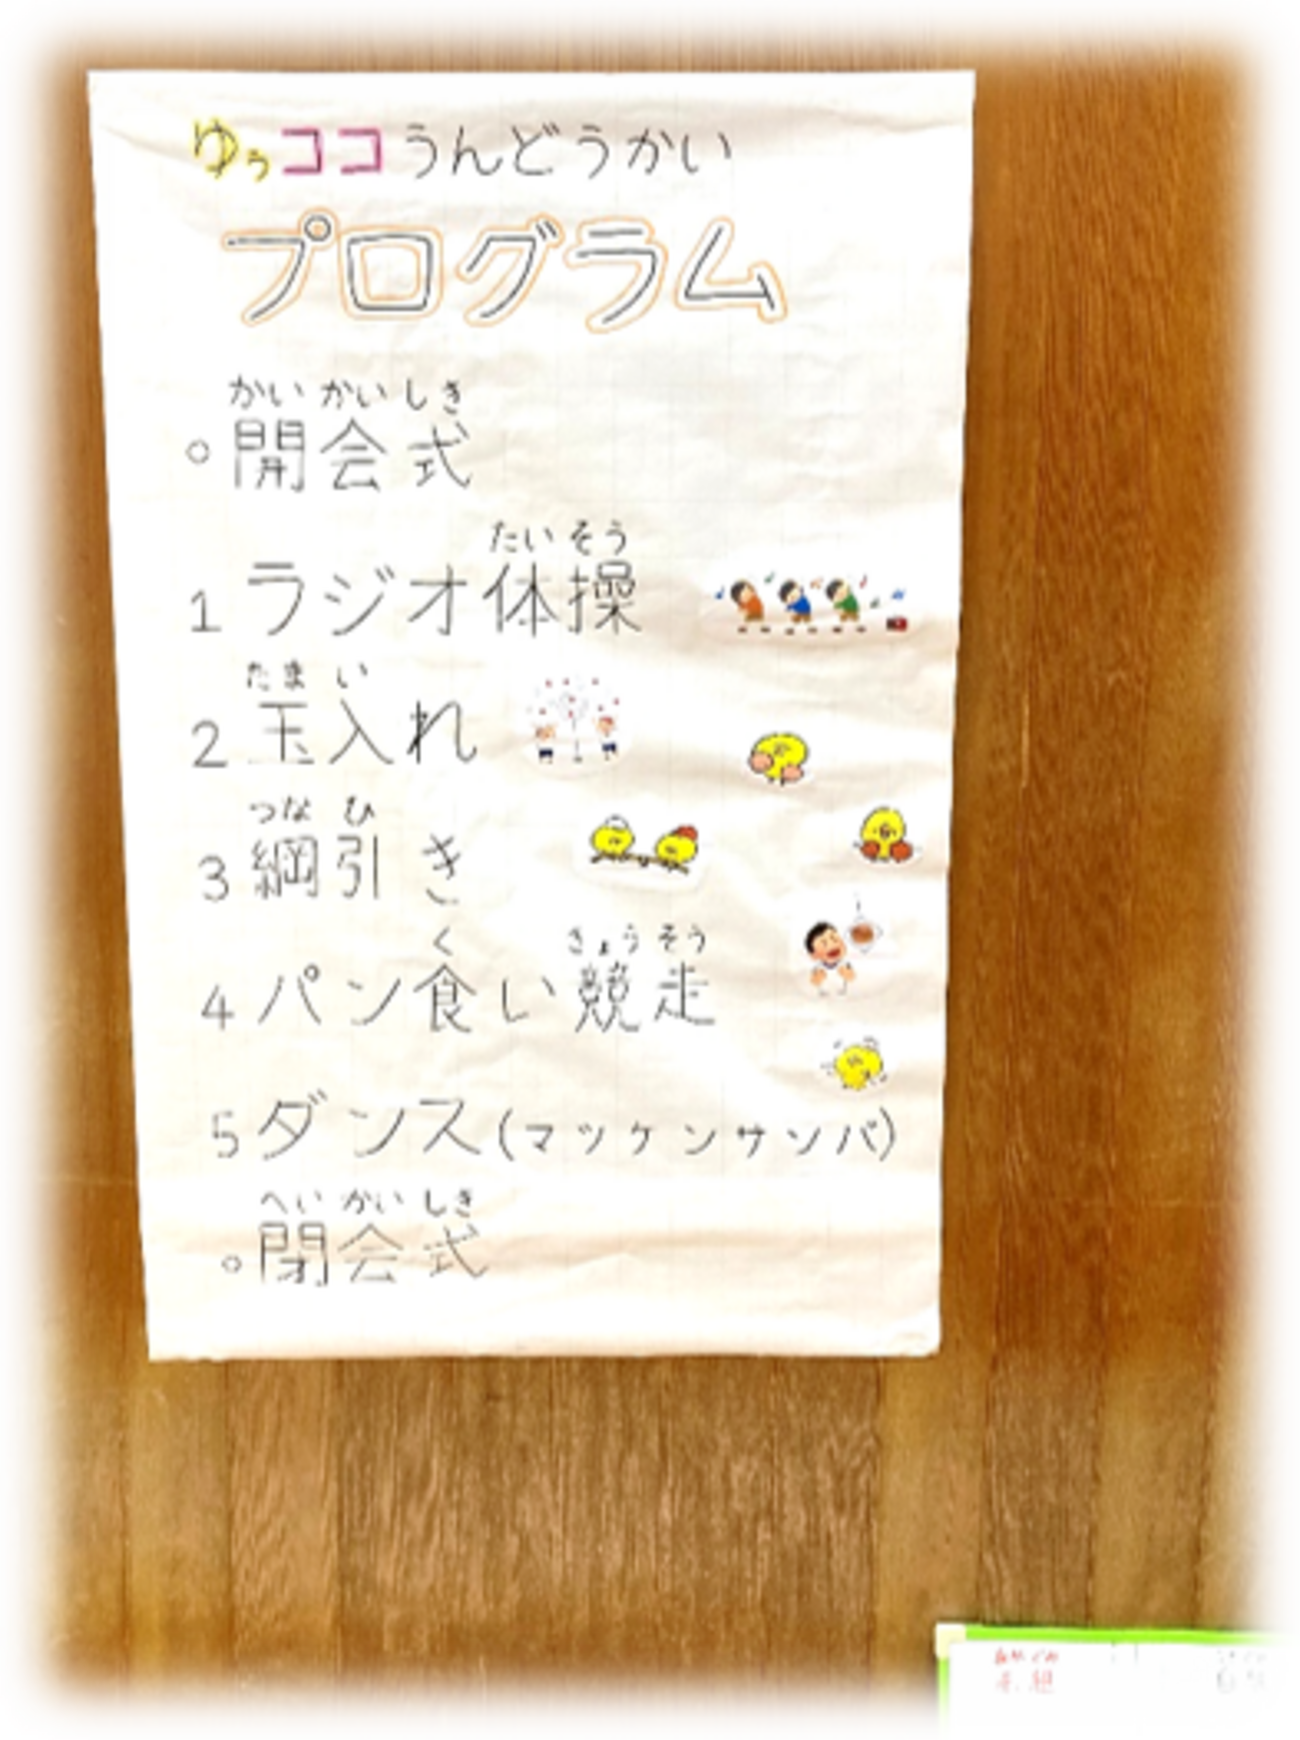 ゆぅココうんどうかい
プログラム
かいかいしき
○開会式
たいそう
1 ラジオ体操
たまい
2 玉入れ
つなひ
3 綱引き
くきょうそう
4 パン食い競走
5 ダンス(マツケンサンバ)
へいかいしき
○閉会式